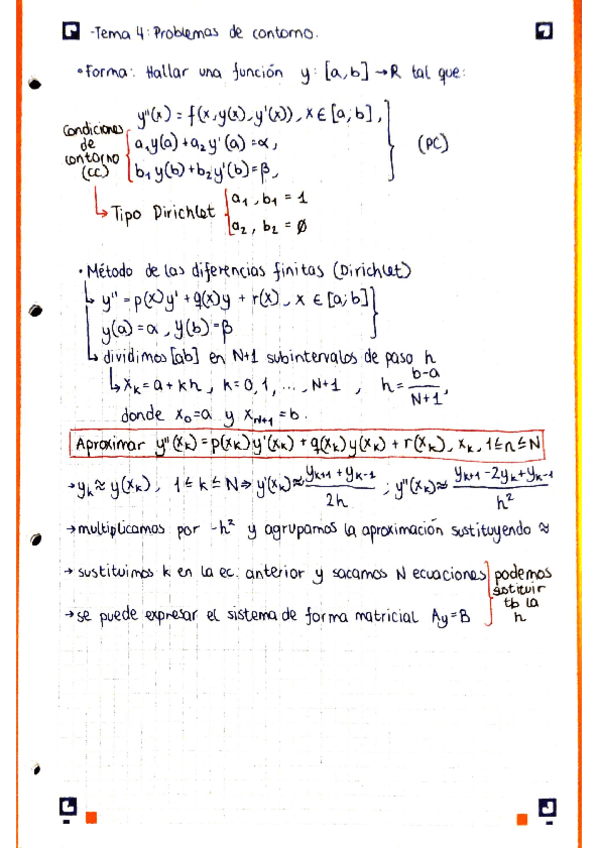 -Tema 4: Problemas de contorno.
• Forma: Hallar una función y: [a,b] → R tal que:
y''(x) = f(x,y(x),y'(x)), x ∈ [a;b],
Condiciones de contorno (CC)
a₁y(a)+a₂y'(a)=α,
b₁y(b)+b₂y'(b)=β,
(PC)
↳ Tipo Dirichlet
a₁, b₁ = 1
a₂, b₂ = Ø
• Método de las diferencias finitas (Dirichlet)
↳ y'' = p(x)y' + q(x)y + r(x), x ∈ [a;b]
y(a)=α, y(b)=β
↳ dividimos [ab] en N+1 subintervalos de paso h
↳ xₖ = a + kh, k=0,1,..., N+1, h = (b-a)/(N+1),
donde x₀=a y x_{N+1}=b.
Aproximar y''(xₖ) = p(xₖ)y'(xₖ) + q(xₖ)y(xₖ) + r(xₖ), xₖ, 1≤n≤N
→ yₖ ≈ y(xₖ), 1≤k≤N ⇒ y'(xₖ) ≈ (yₖ₊₁ + yₖ₋₁)/2h ; y''(xₖ) ≈ (yₖ₊₁ - 2yₖ + yₖ₋₁)/h²
→ multiplicamos por -h² y agrupamos la aproximación sustituyendo ≈
→ sustituimos k en la ec. anterior y sacamos N ecuaciones
→ se puede expresar el sistema de forma matricial Ay=B
podemos
sstituir
tb la
h